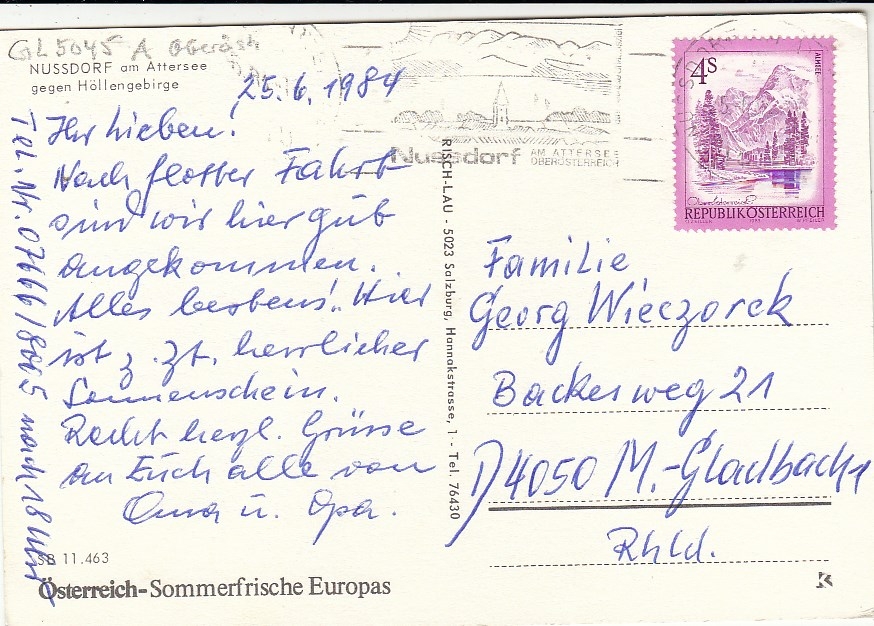 GL 5045 A Oberöst
NUSSDORF am Attersee
gegen Höllengebirge
25.6.1984
Ihr Lieben!
Nach flotter Fahrt
sind wir hier gut
angekommen.
Alles bestens! Hier
ist z. zt. herrlicher
Sonnenschein.
Recht herzl. Grüsse
an Euch alle von
Oma u. Opa.
Tel.-Nr. 07666/8065 nach 18 Uhr
SB 11.463
Österreich-Sommerfrische Europas
RISCH-LAU - 5023 Salzburg, Hannakstrasse, 1 - Tel. 76430
Nussdorf AM ATTERSEE
OBERÖSTERREICH
4S
ALMSEE
Oberösterreich
REPUBLIK ÖSTERREICH
Familie
Georg Wieczorek
Backesweg 21
D 4050 M.-Gladbach 1
Rhld.